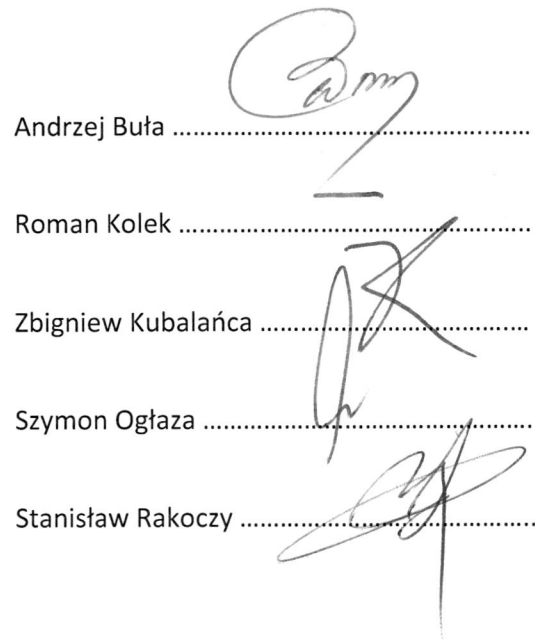 Andrzej Buła ......................................................
Roman Kolek .....................................................
Zbigniew Kubalańca .........................................
Szymon Ogłaza .................................................
Stanisław Rakoczy ............................................